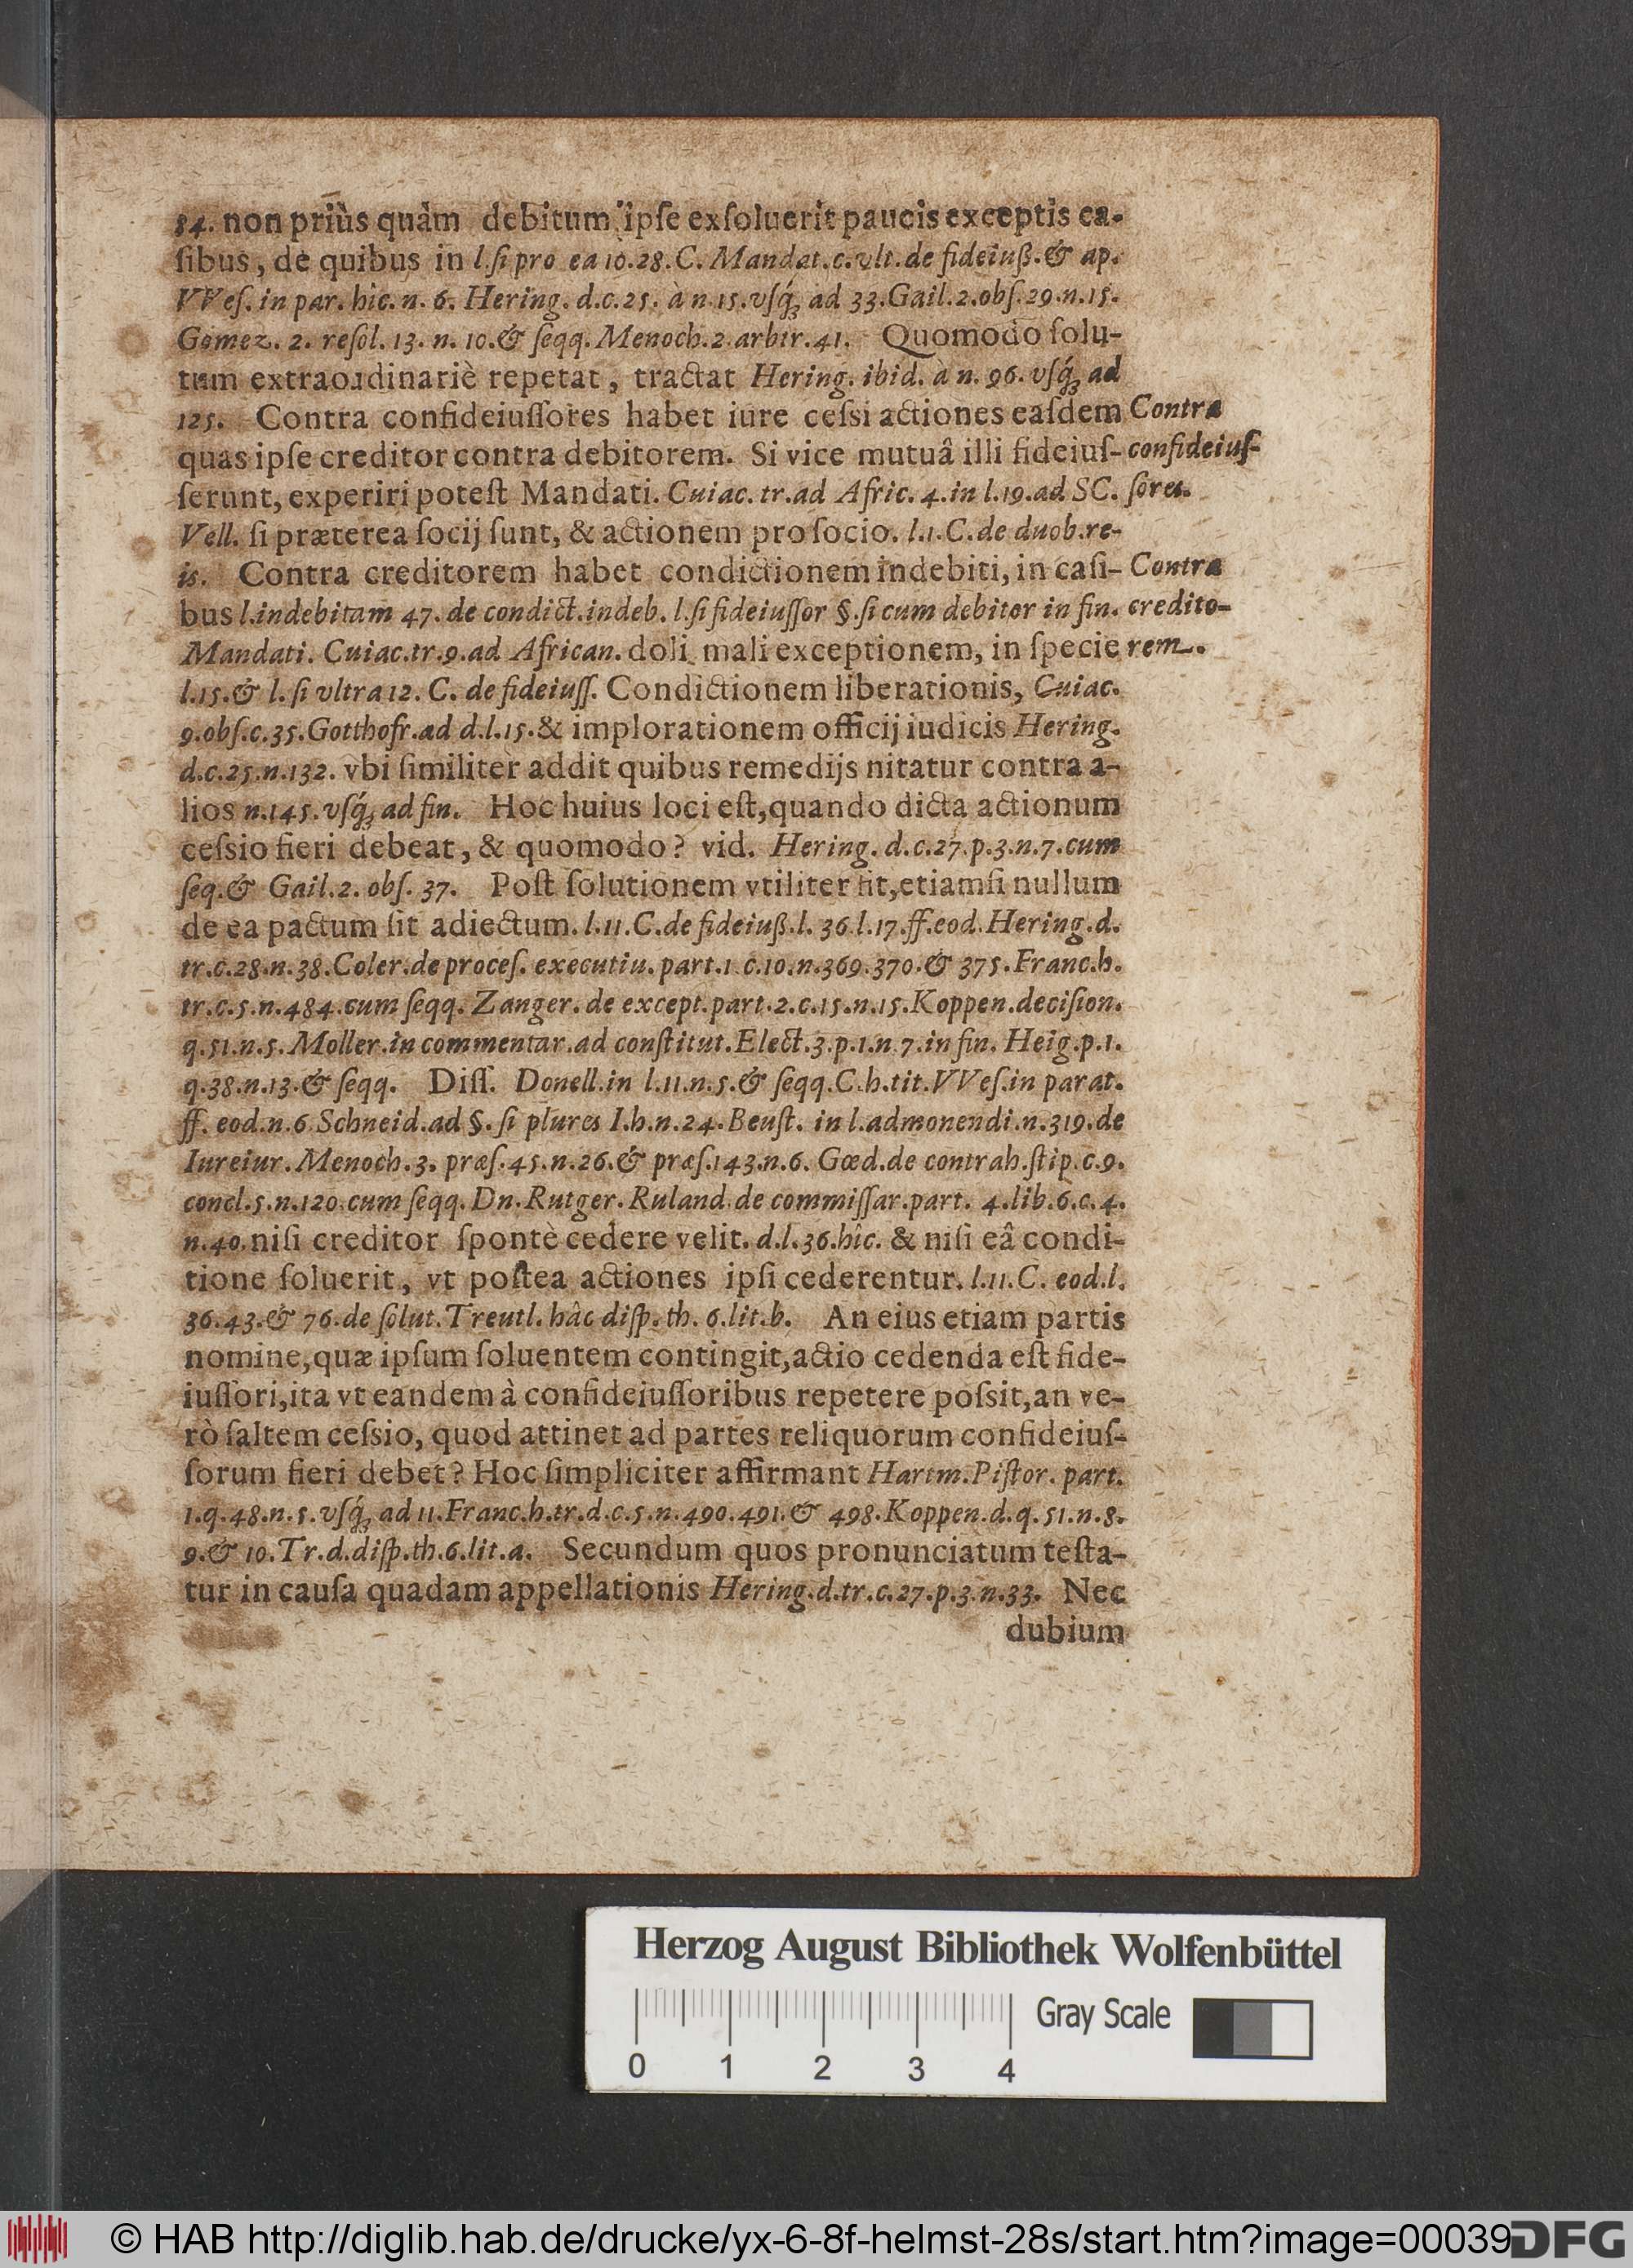 84. non priùs quàm debitum ipſe exſoluerit paucis exceptis ca-
ſibus, de quibus in l.ſi pro ea 10.28.C. Mandat.c.vlt.de fideiuß.& ap.
VVeſ.in par.hîc.n.6. Hering.d.c.25. à n.15.vſq́ꝫ ad 33.Gail.2.obſ.29.n.15.
Gomez. 2. reſol. 13. n. 10.& ſeqq. Menoch.2.arbitr.41. Quomodo ſolu-
tum extraordinariè repetat, tractat Hering. ibid. à n. 96. vſq́ꝫ ad
125. Contra confideiuſſores habet iure ceſsi actiones eaſdem
Contra
quas ipſe creditor contra debitorem. Si vice mutuâ illi fideiuſ-
confideiuſ-
ſerunt, experiri poteſt Mandati. Cuiac. tr.ad Afric. 4.in l.19.ad SC.
ſores.
Vell. ſi præterea ſocij ſunt, & actionem pro ſocio. l.1.C.de duob.re-
is. Contra creditorem habet condictionem indebiti, in caſi-
Contra
bus l.indebitam 47. de condict.indeb. l.ſi fideiuſſor §.ſi cum debitor in fin.
credito-
Mandati. Cuiac.tr.9.ad African. doli mali exceptionem, in ſpecie
rem.
l.15.& l. ſi vltra 12. C. de fideiuſſ. Condictionem liberationis, Cuiac.
9.obſ.c.35.Gotthofr.ad d.l.15.& implorationem officij iudicis Hering.
d.c.25.n.132. vbi ſimiliter addit quibus remedijs nitatur contra a-
lios n.145.vſq́ꝫ ad fin. Hoc huius loci eſt,quando dicta actionum
ceſsio fieri debeat, & quomodo? vid. Hering. d.c.27.p.3.n.7.cum
ſeq.& Gail.2. obſ. 37. Poſt ſolutionem vtiliter fit,etiamſi nullum
de ea pactum ſit adiectum. l.11.C.de fideiuß.l. 36.l.17.ff.eod.Hering.d.
tr.c.28.n.38.Coler.de proceſ. executiu.part.1.c.10.n.369.370.& 375.Franc.h.
tr.c.5.n.484.cum ſeqq. Zanger. de except.part.2.c.15.n.15.Koppen.deciſion.
q.51.n.5.Moller.in commentar.ad conſtitut.Elect.3.p.1.n.7.in fin. Heig.p.1.
q.38.n.13.& ſeqq. Diſſ. Donell.in l.11.n.5.& ſeqq.C.h.tit.VVeſ.in parat.
ff. eod.n.6.Schneid.ad §. ſi plures I.h.n.24.Beuſt. in l.admonendi.n.319.de
Iureiur.Menoch.3. præſ.45.n.26.& præſ.143.n.6. Gœd.de contrah.ſtip.c.9.
concl.5.n.120.cum ſeqq. Dn.Rutger.Ruland.de commiſſar.part. 4.lib.6.c.4.
n.40.niſi creditor ſpontè cedere velit. d.l.36.hîc. & niſi eâ condi-
tione ſoluerit, vt poſtea actiones ipſi cederentur. l.11.C. eod.l.
36.43.& 76.de ſolut.Treutl. hâc diſp.th. 6.lit.b. An eius etiam partis
nomine,quæ ipſum ſoluentem contingit,actio cedenda eſt fide-
iuſſori,ita vt eandem à confideiuſſoribus repetere poſsit,an ve-
rò ſaltem ceſsio, quod attinet ad partes reliquorum confideiuſ-
ſorum fieri debet? Hoc ſimpliciter affirmant Hartm.Piſtor. part.
1.q.48.n.5.vſq́ꝫ ad 11.Franc.h.tr.d.c.5.n.490.491.& 498.Koppen.d.q.51.n.8.
9.& 10.Tr.d.diſp.th.6.lit.a. Secundum quos pronunciatum teſta-
tur in cauſa quadam appellationis Hering.d.tr.c.27.p.3.n.33. Nec
dubium
Herzog August Bibliothek Wolfenbüttel
Gray Scale
0 1 2 3 4
© HAB http://diglib.hab.de/drucke/yx-6-8f-helmst-28s/start.htm?image=00039
DFG